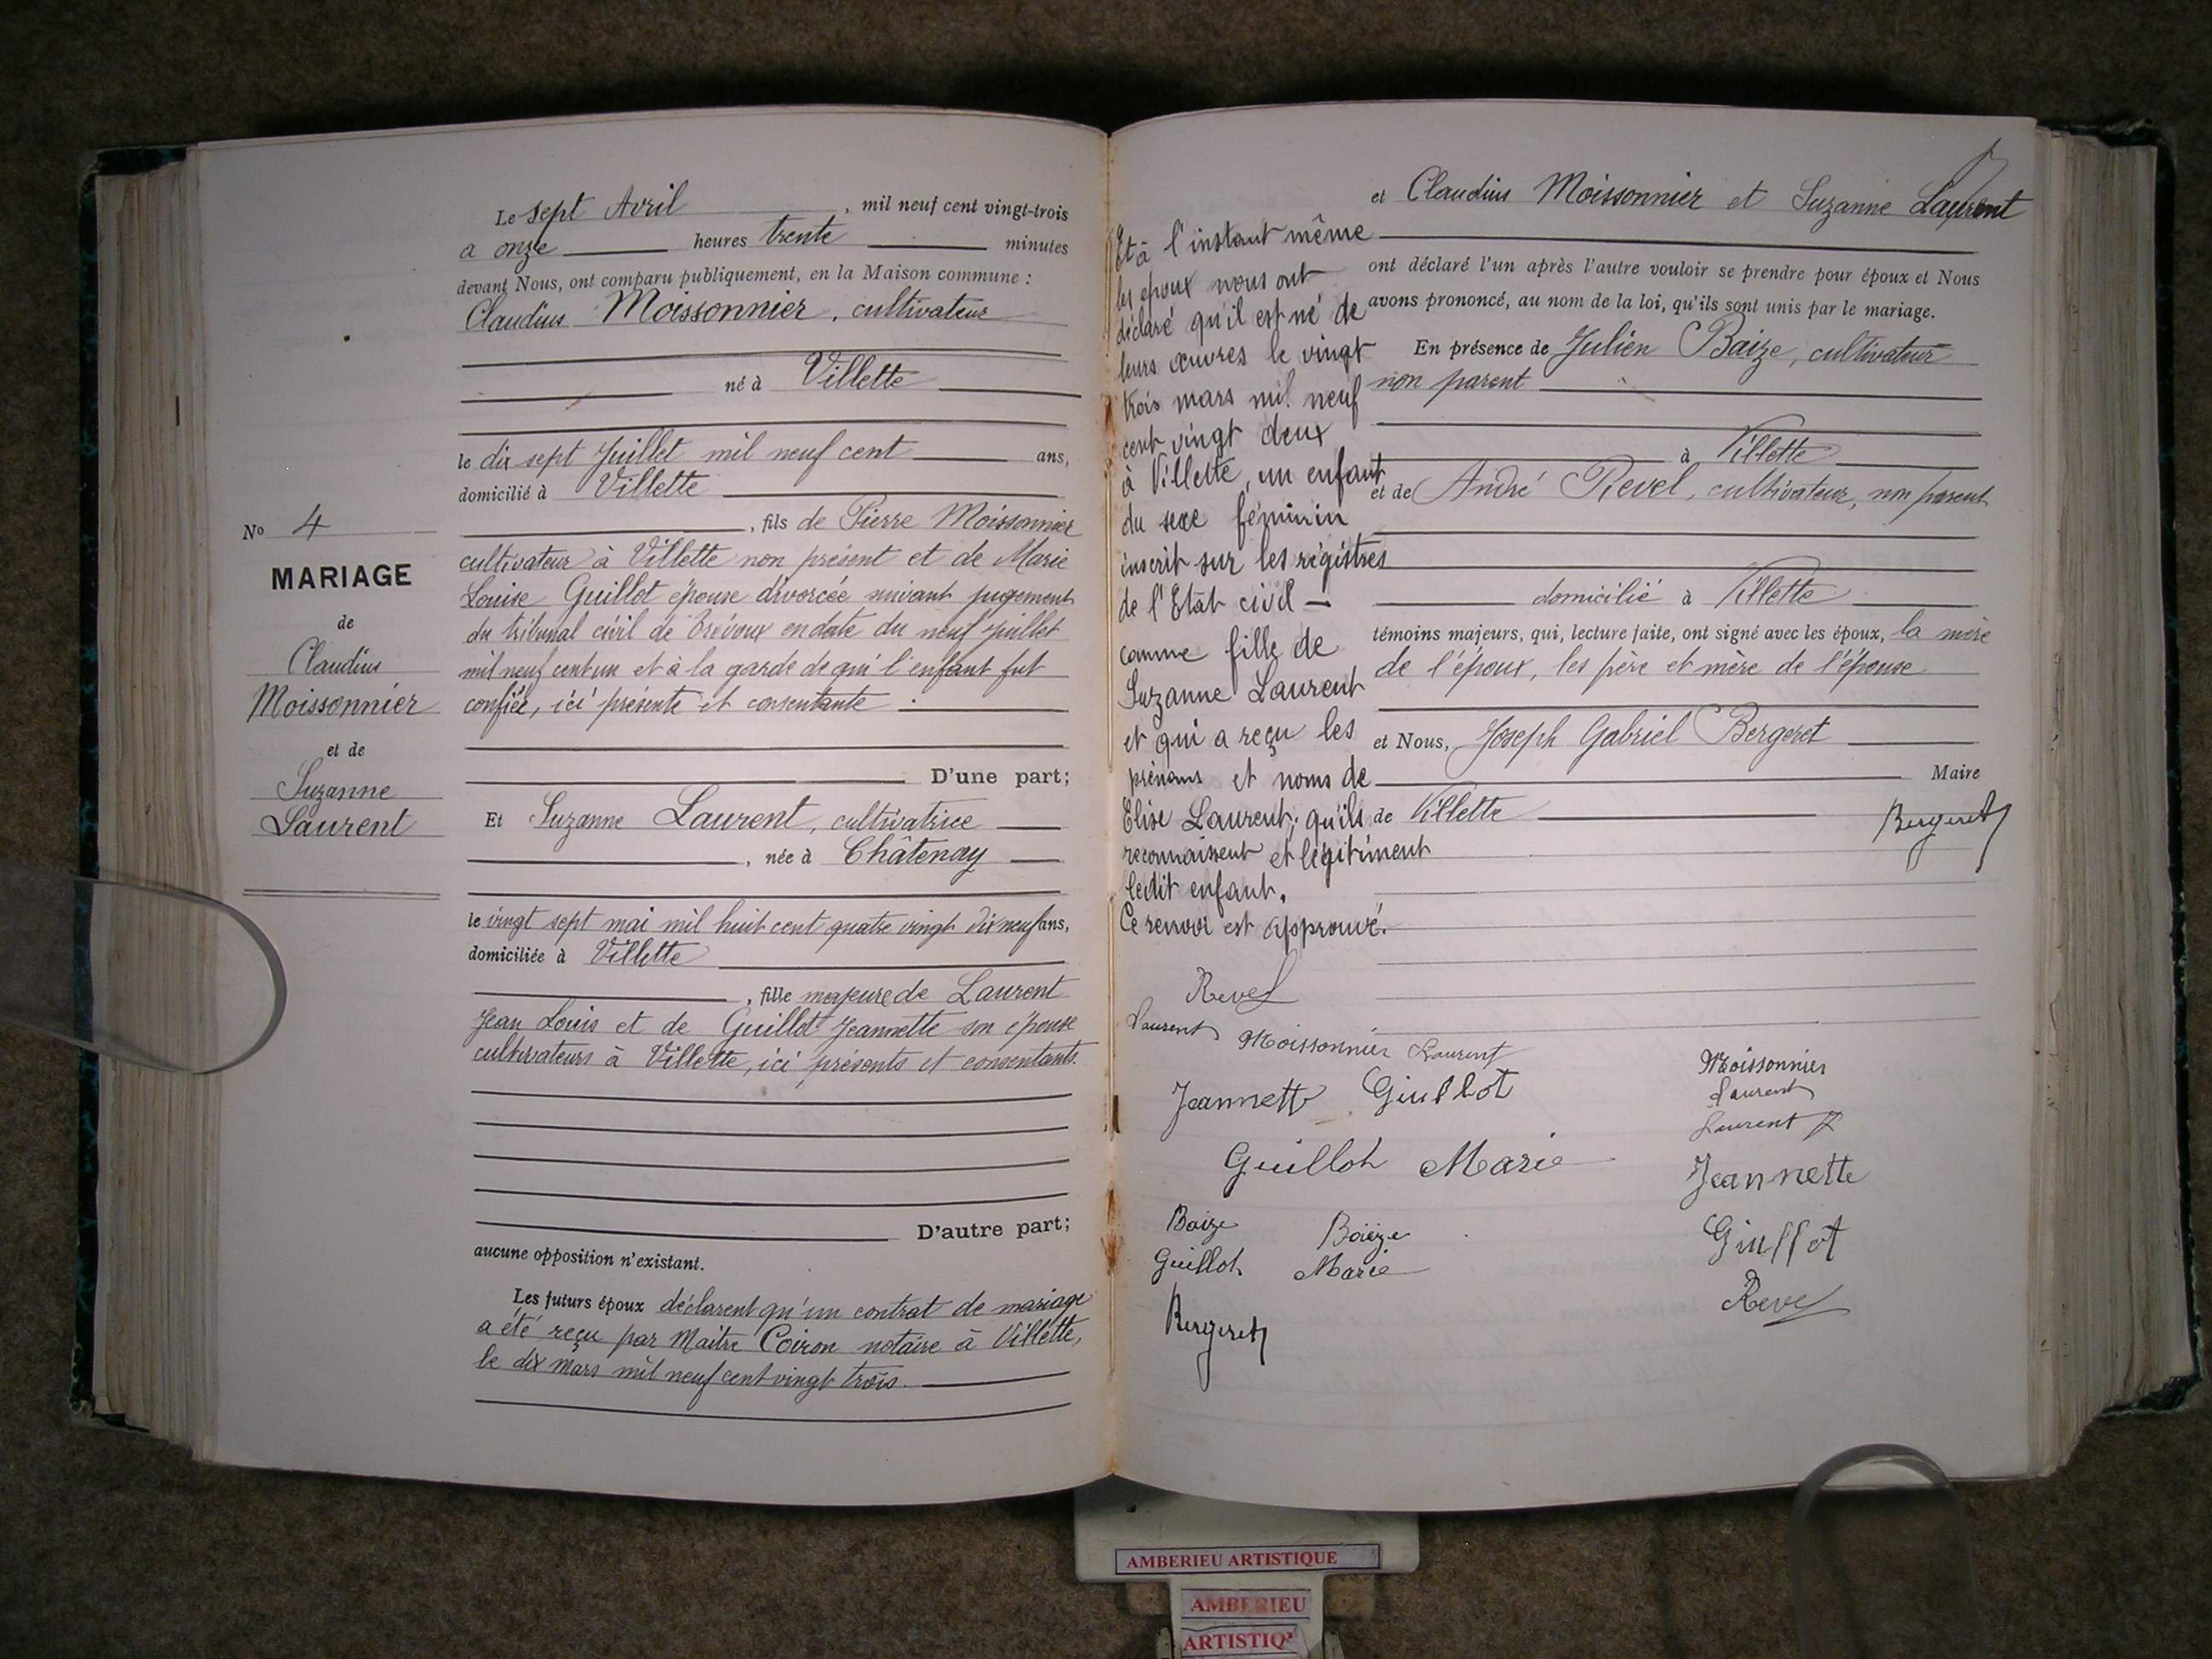 Le sept Avril, mil neuf cent vingt-trois
a onze heures trente minutes
devant Nous, ont comparu publiquement, en la Maison commune :
Claudius Moissonnier, cultivateur
né à Villette
le dix sept Juillet mil neuf cent ans,
domicilié à Villette
No 4
MARIAGE
de
Claudius
Moissonnier
et de
Suzanne
Laurent
, fils de Pierre Moissonnier
cultivateur à Villette non présent et de Marie
Louise Guillot épouse divorcée suivant jugement
du tribunal civil de Trévoux en date du neuf juillet
mil neuf cent un et à la garde de qui l'enfant fut
confiée, ici présente et consentante.
D'une part;
Et Suzanne Laurent, cultivatrice
, née à Châtenay
le vingt sept mai mil huit cent quatre vingt dix neuf ans,
domiciliée à Villette
, fille majeure de Laurent
Jean Louis et de Guillot Jeannette son épouse
cultivateurs à Villette, ici présents et consentants.
D'autre part;
aucune opposition n'existant.
Les futurs époux déclarent qu'un contrat de mariage
a été reçu par Maître Coiron notaire à Villette,
le dix mars mil neuf cent vingt trois.
et Claudius Moissonnier et Suzanne Laurent
ont déclaré l'un après l'autre vouloir se prendre pour époux et Nous
avons prononcé, au nom de la loi, qu'ils sont unis par le mariage.
En présence de Julien Baize, cultivateur
non parent
à Villette
et de André Revel, cultivateur, non parent
domicilié à Villette
témoins majeurs, qui, lecture faite, ont signé avec les époux, la mère
de l'époux, les père et mère de l'épouse
et Nous, Joseph Gabriel Bergeret
Maire
de Villette
Bergeret
Et à l'instant même
les époux nous ont
déclaré qu'il est né de
leurs œuvres le vingt
trois mars mil neuf
cent vingt deux
à Villette, un enfant
du sexe féminin
inscrit sur les régistres
de l'Etat civil
comme fille de
Suzanne Laurent
et qui a reçu les
prénoms et noms de
Elise Laurent; qu'ils
reconnaissent et légitiment
ledit enfant.
Ce renvoi est approuvé.
Revel
Laurent Moissonnier Laurent
Jeannette Guillot
Guillot Marie
Baize Baize
Guillot Marie
Bergeret
Moissonnier
Laurent
Laurent
Jeannette
Guillot
Revel
AMBERIEU ARTISTIQUE
AMBERIEU
ARTISTIQ